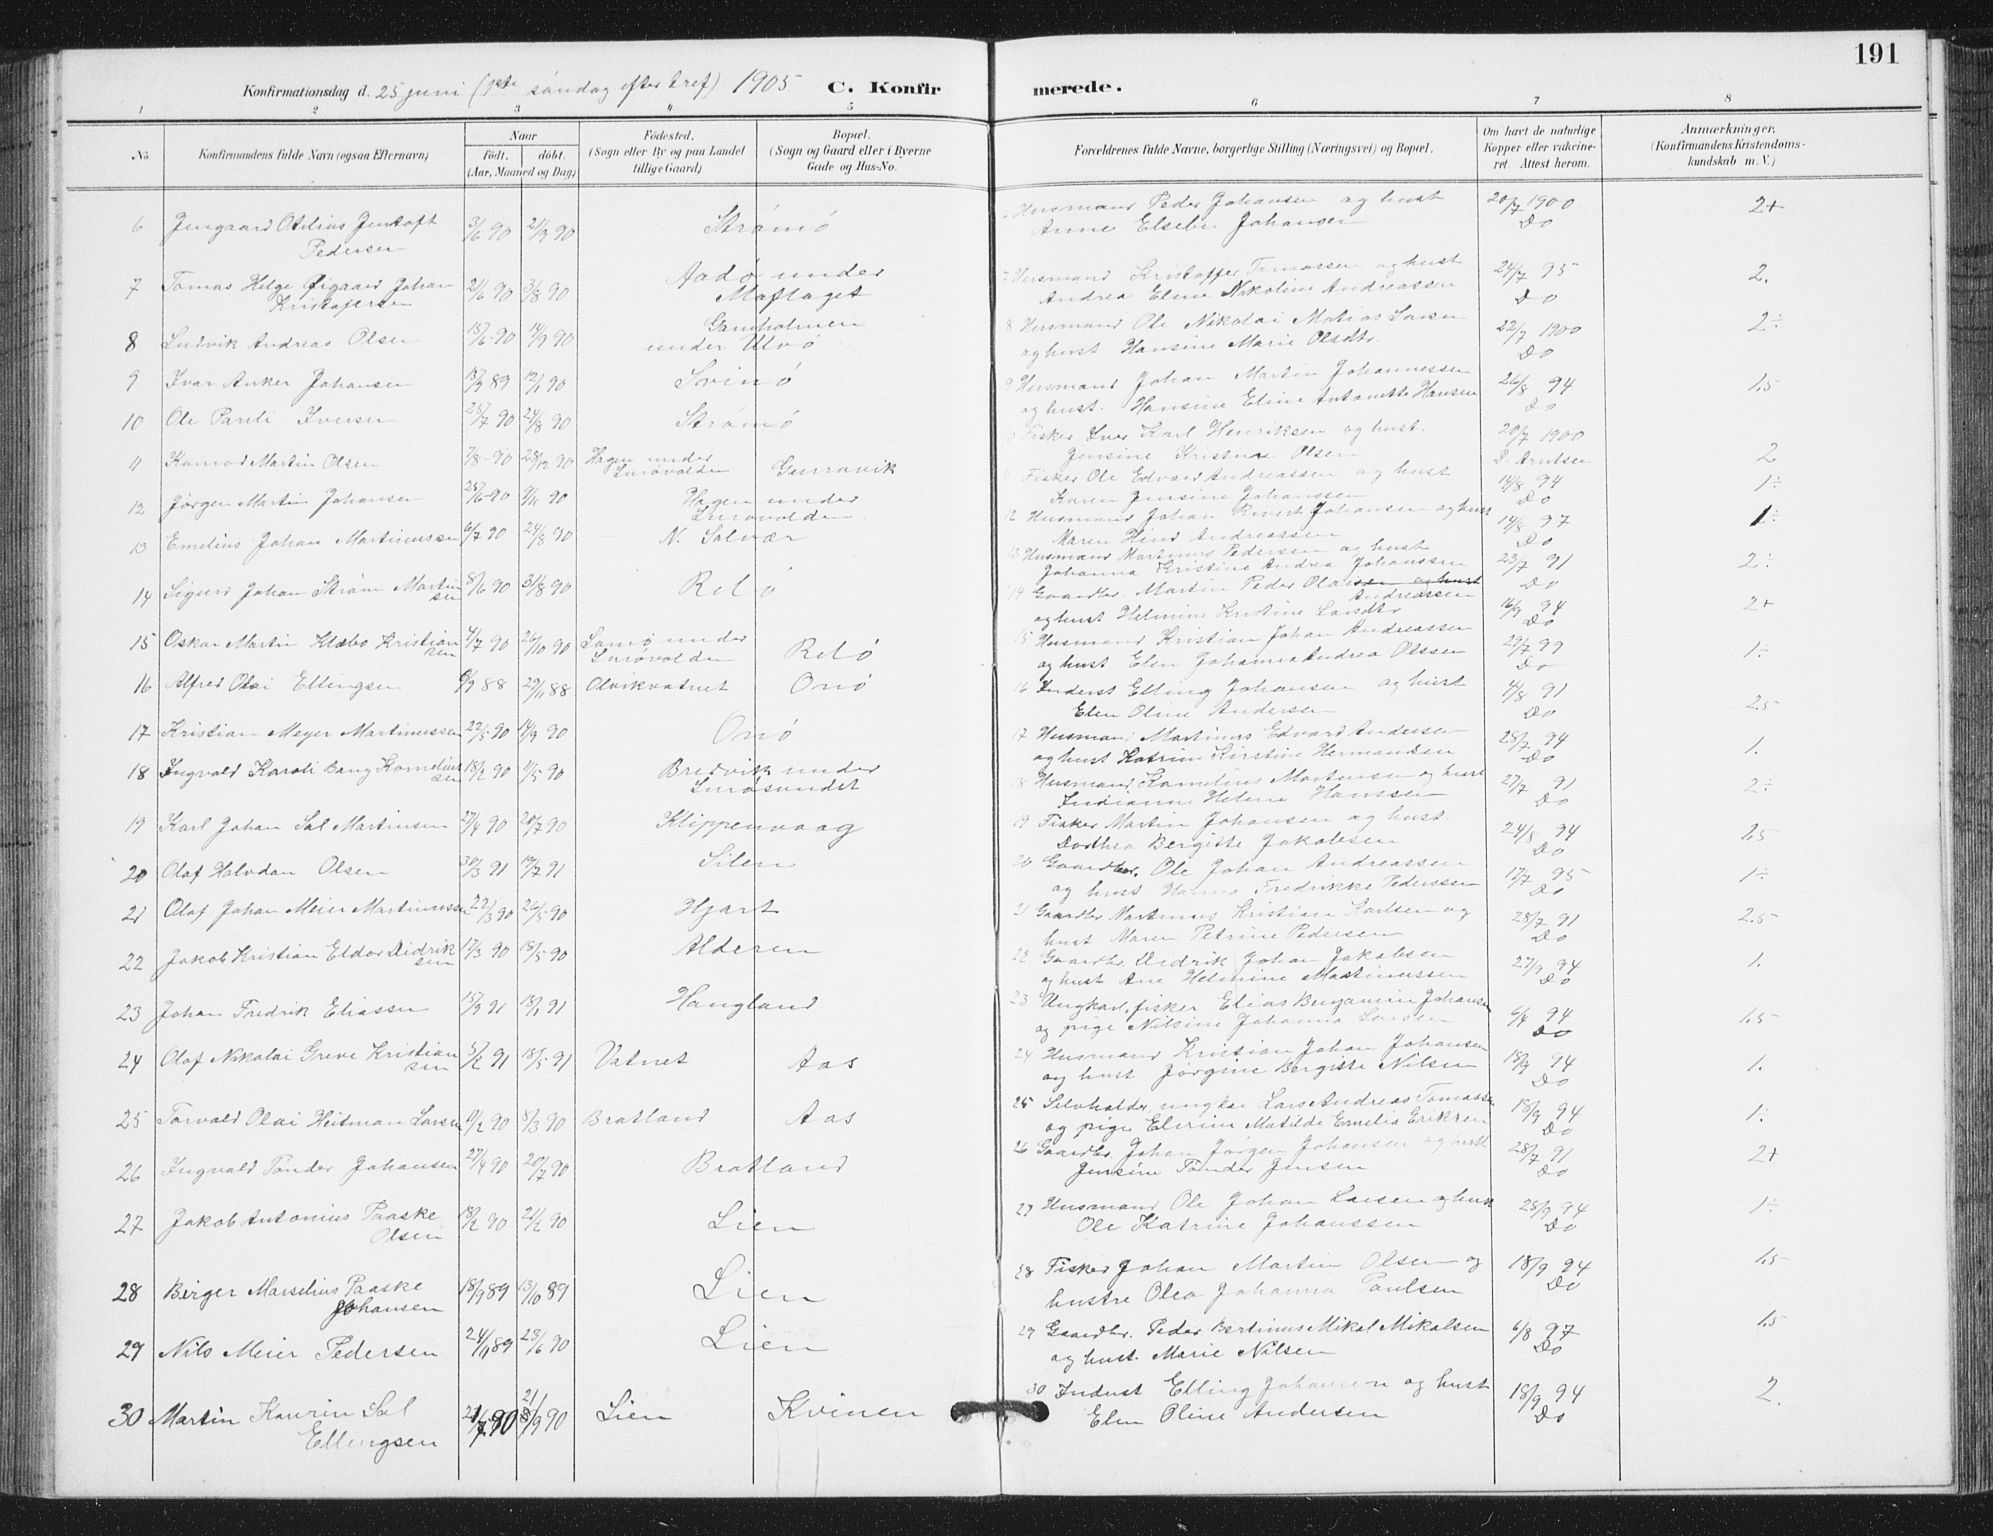 191
Konfirmationsdag d. 25 juni (1ste søndag efter tref) 1905 C. Konfirmerede.
1 2 3 4 5 6 7 8
No. Konfirmandens fulde Navn (ogsaa Efternavn) Naar født. døbt. (Aar, Maaned og Dag) Fødested. (Sogn eller By og paa Landet tillige Gaard) Bopæl. (Sogn og Gaard eller i Byerne Gade og Hus-No. Forældrenes fulde Navne, borgerlige Stilling (Næringsvei) og Bopæl. Om havt de naturlige Kopper eller vakcineret. Attest herom. Anmærkninger. (Konfirmandens Kristendomskundskab m. V.)
6 Jentoft Pedersen 3/6 90 21/9 90 Strømø Husmand Peder Johansen og hust Anne Elseba Johansen 20/7 1900 Do 2+
7 Tomas Helge Øigaard Johan Kristofersen 21/6 90 3/8 90 Aadø under Moflaget Husmand Kristoffer Tomassen og hust Andrea Eline Nikoline Andreassen 24/7 95 Do 2.
8 Ludvik Andreas Olsen 15/6 90 14/9 90 Gamholmen under Ulvø 8 Husmand Ole Nikolai Matias Larsen og hust Hansine Marie Olsdtr. 22/7 1900 Do 2÷
9 Ivar Anker Johansen 15/9 89 12/1 90 Svinø 9 Husmand Johan Martin Johannessen og hust. Hansine Eline Antonette Hansen 26/8 94 Do 1.5
10 Ole Pauli Iversen 25/7 90 24/8 90 Strømø Fisker Iver Karl Henriksen og hust. Jensine Kristine Olsen 20/7 1900 D. Arntsen 2
11 Konrad Martin Olsen 7/8 90 28/12 90 Hagen under Lurøvolden Gurravik Fisker Ole Edvard Andreassen og hust Karen Jensine Johanssen 14/8 94 Do 1÷
12 Jørgen Martin Johansen 25/6 90 9/11 90 Hagen under Lurøvolden 12 Husmand Johan Rivert Johansen og hust Maren Andreassen 14/8 97 Do 1÷
13 Emelius Johan Martinussen 6/7 90 24/8 90 N. Solvær 13 Husmand Martinus Pedersen og hust Johanna Kristine Andrea Johanssen 23/7 91 Do 2÷
14 Sigurd Johan Strøm Martinsen 8/6 90 31/8 90 Relø 14 Gaardbr. Martin Peder Olaissen og hust Andreassen og hust Helmine Kristine Larsdtr 16/9 94 Do 2+
15 Oskar Martin Klæbo Kristiansen 4/7 90 26/10 90 under Lurøvolden Relø 15 Husmand Kristian Johan Andreassen og hust Elen Johanna Andrea Olssen 29/7 99 Do 1÷
16 Alfred Olai Ellingsen 9/9 88 29/11 88 Olvikvatnet Onø 16 Inderst Elling Johansen og hust Elen Oline Andersen 4/8 91 Do 2.5
17 Kristian Meyer Martinussen 22/5 90 14/9 90 Onø 17 Husman Martinus Edvard Andersen og hust Katrine Kirstine Hermandsen 28/7 94 Do 1.
18 Ingvald Karoli Bang Korneliussen 18/2 90 11/5 90 Bredvik under Lurøsundet 18 Husmand Kornelius Mortensen og hust Indianne Helene Hanssen 27/7 91 Do 2÷
19 Karl Johan Sol Martinsen 27/4 90 20/7 90 Klippenvaag 19 Fisker Martin Johansen og hust. Dorthea Bergitte Jakobsen 24/8 94 Do 1.5
20 Olaf Halvdan Olsen 30/3 91 19/7 91 Silen 20 Gaardbr. Ole Johan Andreassen og hust Hanna Fredrikke Pederssen 17/7 95 Do 1÷
21 Olaf Johan Meier Martinussen 22/3 90 26/5 90 Hjart 21 Gaardbr Martinus Kristian Karlsen og hust Maren Petrine Pedersen 28/7 91 Do 2.5
22 Jakob Kristian Eldor Didriksen 17/3 90 18/5 90 Alderen 22 Gaardbr. Didrik Johan Jakobsen og hust Ane Helmine Martinussen 27/9 94 Do 1.
23 Johan Fredrik Eliassen 15/9 91 18/1 91 Haugland 23 Ungkarl, fisker Elias Benjamin Johansen og pige Nilsine Johanna Larsen 6/4 94 Do 1.5
24 Olaf Nikolai Greve Kristiansen 5/2 91 18/5 91 Vatnet Aas 24 Husmand Kristian Johan Johansen og hust Jørgine Bergitte Nilsen 18/9 94 Do 1.
25 Torvald Olai Heitman Larsen 11/2 90 8/3 90 Bratland Aas 25 Selvholder, ungkar Lars Andreas Tomassen og pige Elerine Matilde Emelia Eriksen 18/9 94 Do 1÷
26 Ingvald Tønder Johansen 27/4 90 20/7 90 Bratland 26 Gaardbr. Johan Jørgen Johansen og hust Jensine Tønder Jensen 28/7 91 Do 2+
27 Jakob Antonius Paaske Olsen 18/2 90 21/2 90 Lien 27 Husmand Ole Johan Larsen og hust Ole Katrine Johanssen 28/9 94 Do 1÷
28 Birger Marselius Paaske Johansen 18/9 89 13/10 89 Lien 28 Fisker Johan Martin Olsen og hustre Olea Johanna Paulsen 18/9 94 Do 1.5
29 Nils Meier Pedersen 24/11 89 23/6 90 Lien 29 Gaardbr. Peder Bertinus Mikal Mikalsen og hust. Marie Nilsen 6/8 97 Do 1.5
30 Martin Kaurin Sol Ellingsen 21/7 90 21/9 90 Lien Kvinen 30 Indust Elling Johansen og hust Elen Oline Andersen 18/9 94 Do 2.